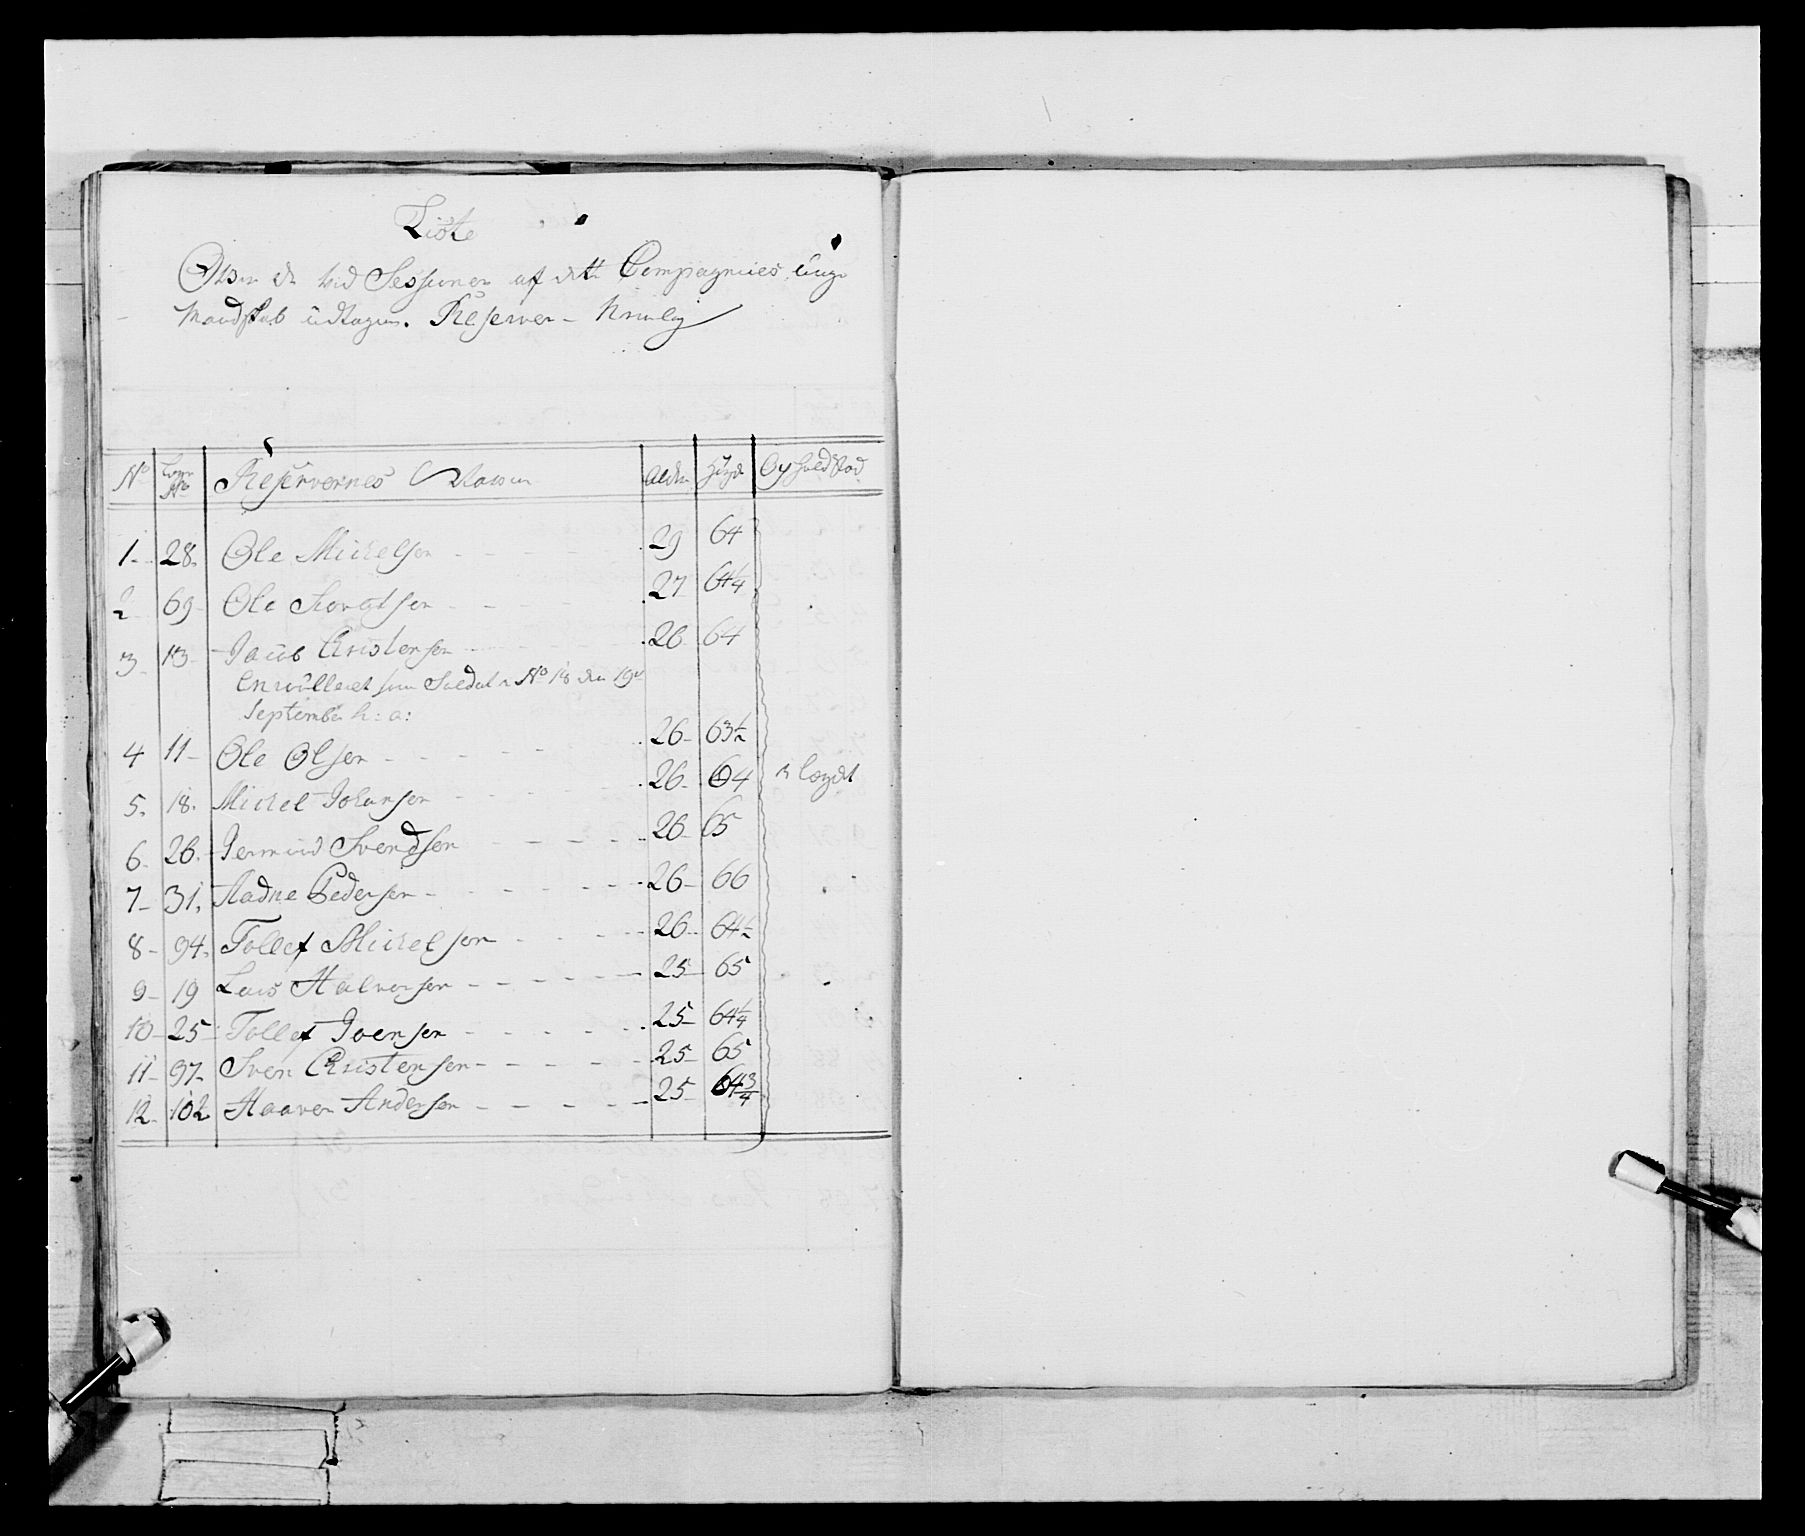 Liste
Over de ved Sessionen af dette Compagnies unge
Mandskab udtagne Reserver - Nemlig
No Comp: No Reservernes Navne Alder Høyde Opholdstæd
1. 28. Ole Mickelsen 29 64
2 69 Ole 27 64 1/4
3 13 Jacob Christensen 26 64
Enrolleret som Soldat No 18 den 19de
September h: a:
4 11 Ole Olsen 26 63 1/2
5. 18. Mickel Johansen 26 64 i bøygdt
6. 26. Germund Svendsen 26 65
7 31. Aadne Pedersen 26 66
8 94. Tollef Mickelsen 26 64 1/2
9 19 Lars Halversen 25 65
10 25 Tollef Joensen 25 64 1/4
11 97 Sven Christensen 25 65
12. 102 Haaver Andersen 25 64 3/4